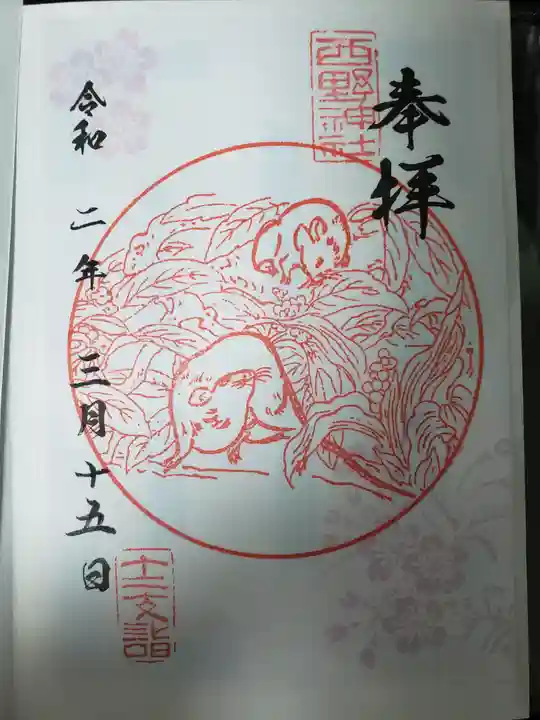 奉拝
西野神社
令和二年三月十五日
十二支詣